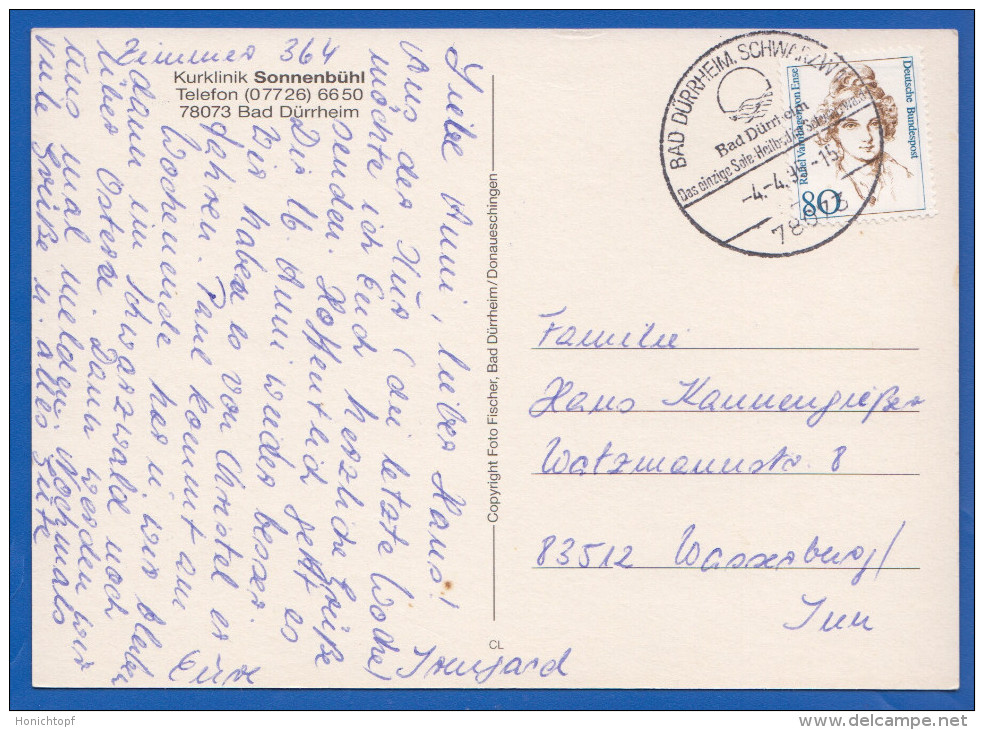 Zimmer 364
Kurklinik Sonnenbühl
Telefon (0 77 26) 66 50
78073 Bad Dürrheim
Liebe Anni, lieber Hans!
Aus der Kur (die letzte Woche)
möchte ich Euch herzliche Grüße
senden. Hoffentlich geht es
Dir lb. Anni wieder besser.
Wir haben es von Christel er
fahren. Paul kommt am
Wochenende her u. wir bleiben
dann im Schwarzwald noch
über Ostern. Dann werden wir
uns mal melden. Nochmals
viele Grüße u. alles Gute
Eure Irmgard
Copyright Foto Fischer, Bad Dürrheim/Donaueschingen
CL
BAD DÜRRHEIM, SCHWARZW
Bad Dürrheim
Das einzige Sole-Heilbad im Schwarzwald
-4.-4.9 -15
78073
Deutsche Bundespost
Rahel Varnhagen von Ense
80
Familie
Hans Kannengießer
Watzmannstr. 8
83512 Wasserburg/
Inn
Honichtopf
www.delcampe.net